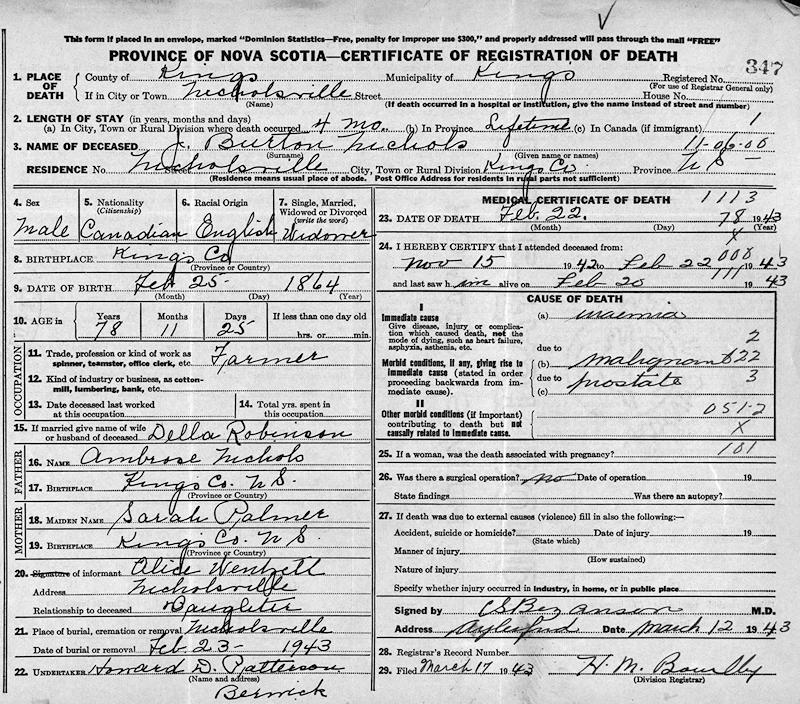 This form if placed in an envelope, marked "Dominion Statistics—Free, penalty for improper use $300," and properly addressed will pass through the mail "FREE"
PROVINCE OF NOVA SCOTIA—CERTIFICATE OF REGISTRATION OF DEATH
347
1. PLACE OF DEATH County of Kings Municipality of Kings Registered No.
(For use of Registrar General only)
If in City or Town Nicholsville Street House No.
(Name) (If death occurred in a hospital or institution, give the name instead of street and number)
2. LENGTH OF STAY (in years, months and days)
(a) In City, Town or Rural Division where death occurred 4 mo. (b) In Province Lifetime (c) In Canada (if immigrant) 1
3. NAME OF DECEASED J. Burton Nichols 11-06-00
(Surname) (Given name or names)
RESIDENCE No. Nicholsville City, Town or Rural Division Kings Co Province N S
(Residence means usual place of abode. Post Office Address for residents in rural parts not sufficient)
4. Sex Male
5. Nationality (Citizenship) Canadian
6. Racial Origin English
7. Single, Married, Widowed or Divorced (write the word) Widower
8. BIRTHPLACE Kings Co
(Province or Country)
9. DATE OF BIRTH Feb 25 - 1864
(Month) (Day) (Year)
10. AGE in Years 78 Months 11 Days 25 If less than one day old
hrs. or min.
OCCUPATION
11. Trade, profession or kind of work as spinner, teamster, office clerk, etc. Farmer
12. Kind of industry or business, as cotton-mill, lumbering, bank, etc.
13. Date deceased last worked at this occupation
14. Total yrs. spent in this occupation
15. If married give name of wife or husband of deceased Della Robinson
FATHER
16. NAME Ambrose Nichols
17. BIRTHPLACE Kings Co. N.S.
(Province or Country)
MOTHER
18. MAIDEN NAME Sarah Palmer
19. BIRTHPLACE Kings Co. N.S.
(Province or Country)
20. Signature of informant Alice
Address Nicholsville
Relationship to deceased Daughter
21. Place of burial, cremation or removal Nicholsville
Date of burial or removal Feb 23 - 1943
22. UNDERTAKER Howard D. Patterson
(Name and address)
Berwick
MEDICAL CERTIFICATE OF DEATH 1113
23. DATE OF DEATH Feb. 22. 78 1943
(Month) (Day) (Year)
X
24. I HEREBY CERTIFY that I attended deceased from:
Nov 15 1942 to Feb 22 1943
008
111
and last saw him alive on Feb 20 1943
CAUSE OF DEATH
I
Immediate cause
Give disease, injury or complication which caused death, not the mode of dying, such as heart failure, asphyxia, asthenia, etc.
(a) uraemia
due to 2
Morbid conditions, if any, giving rise to immediate cause (stated in order proceeding backwards from immediate cause).
(b) malignant 622
due to prostate 3
(c)
II
Other morbid conditions (if important) contributing to death but not causally related to immediate cause.
051-2
X
25. If a woman, was the death associated with pregnancy? 101
26. Was there a surgical operation? no Date of operation 19
State findings Was there an autopsy?
27. If death was due to external causes (violence) fill in also the following:—
Accident, suicide or homicide? Date of injury 19
(State which)
Manner of injury
(How sustained)
Nature of injury
Specify whether injury occurred in industry, in home, or in public place
Signed by C S Bezanson M.D.
Address Aylesford Date March 12 1943
28. Registrar's Record Number
29. Filed March 17 1943 H. M.
(Division Registrar)